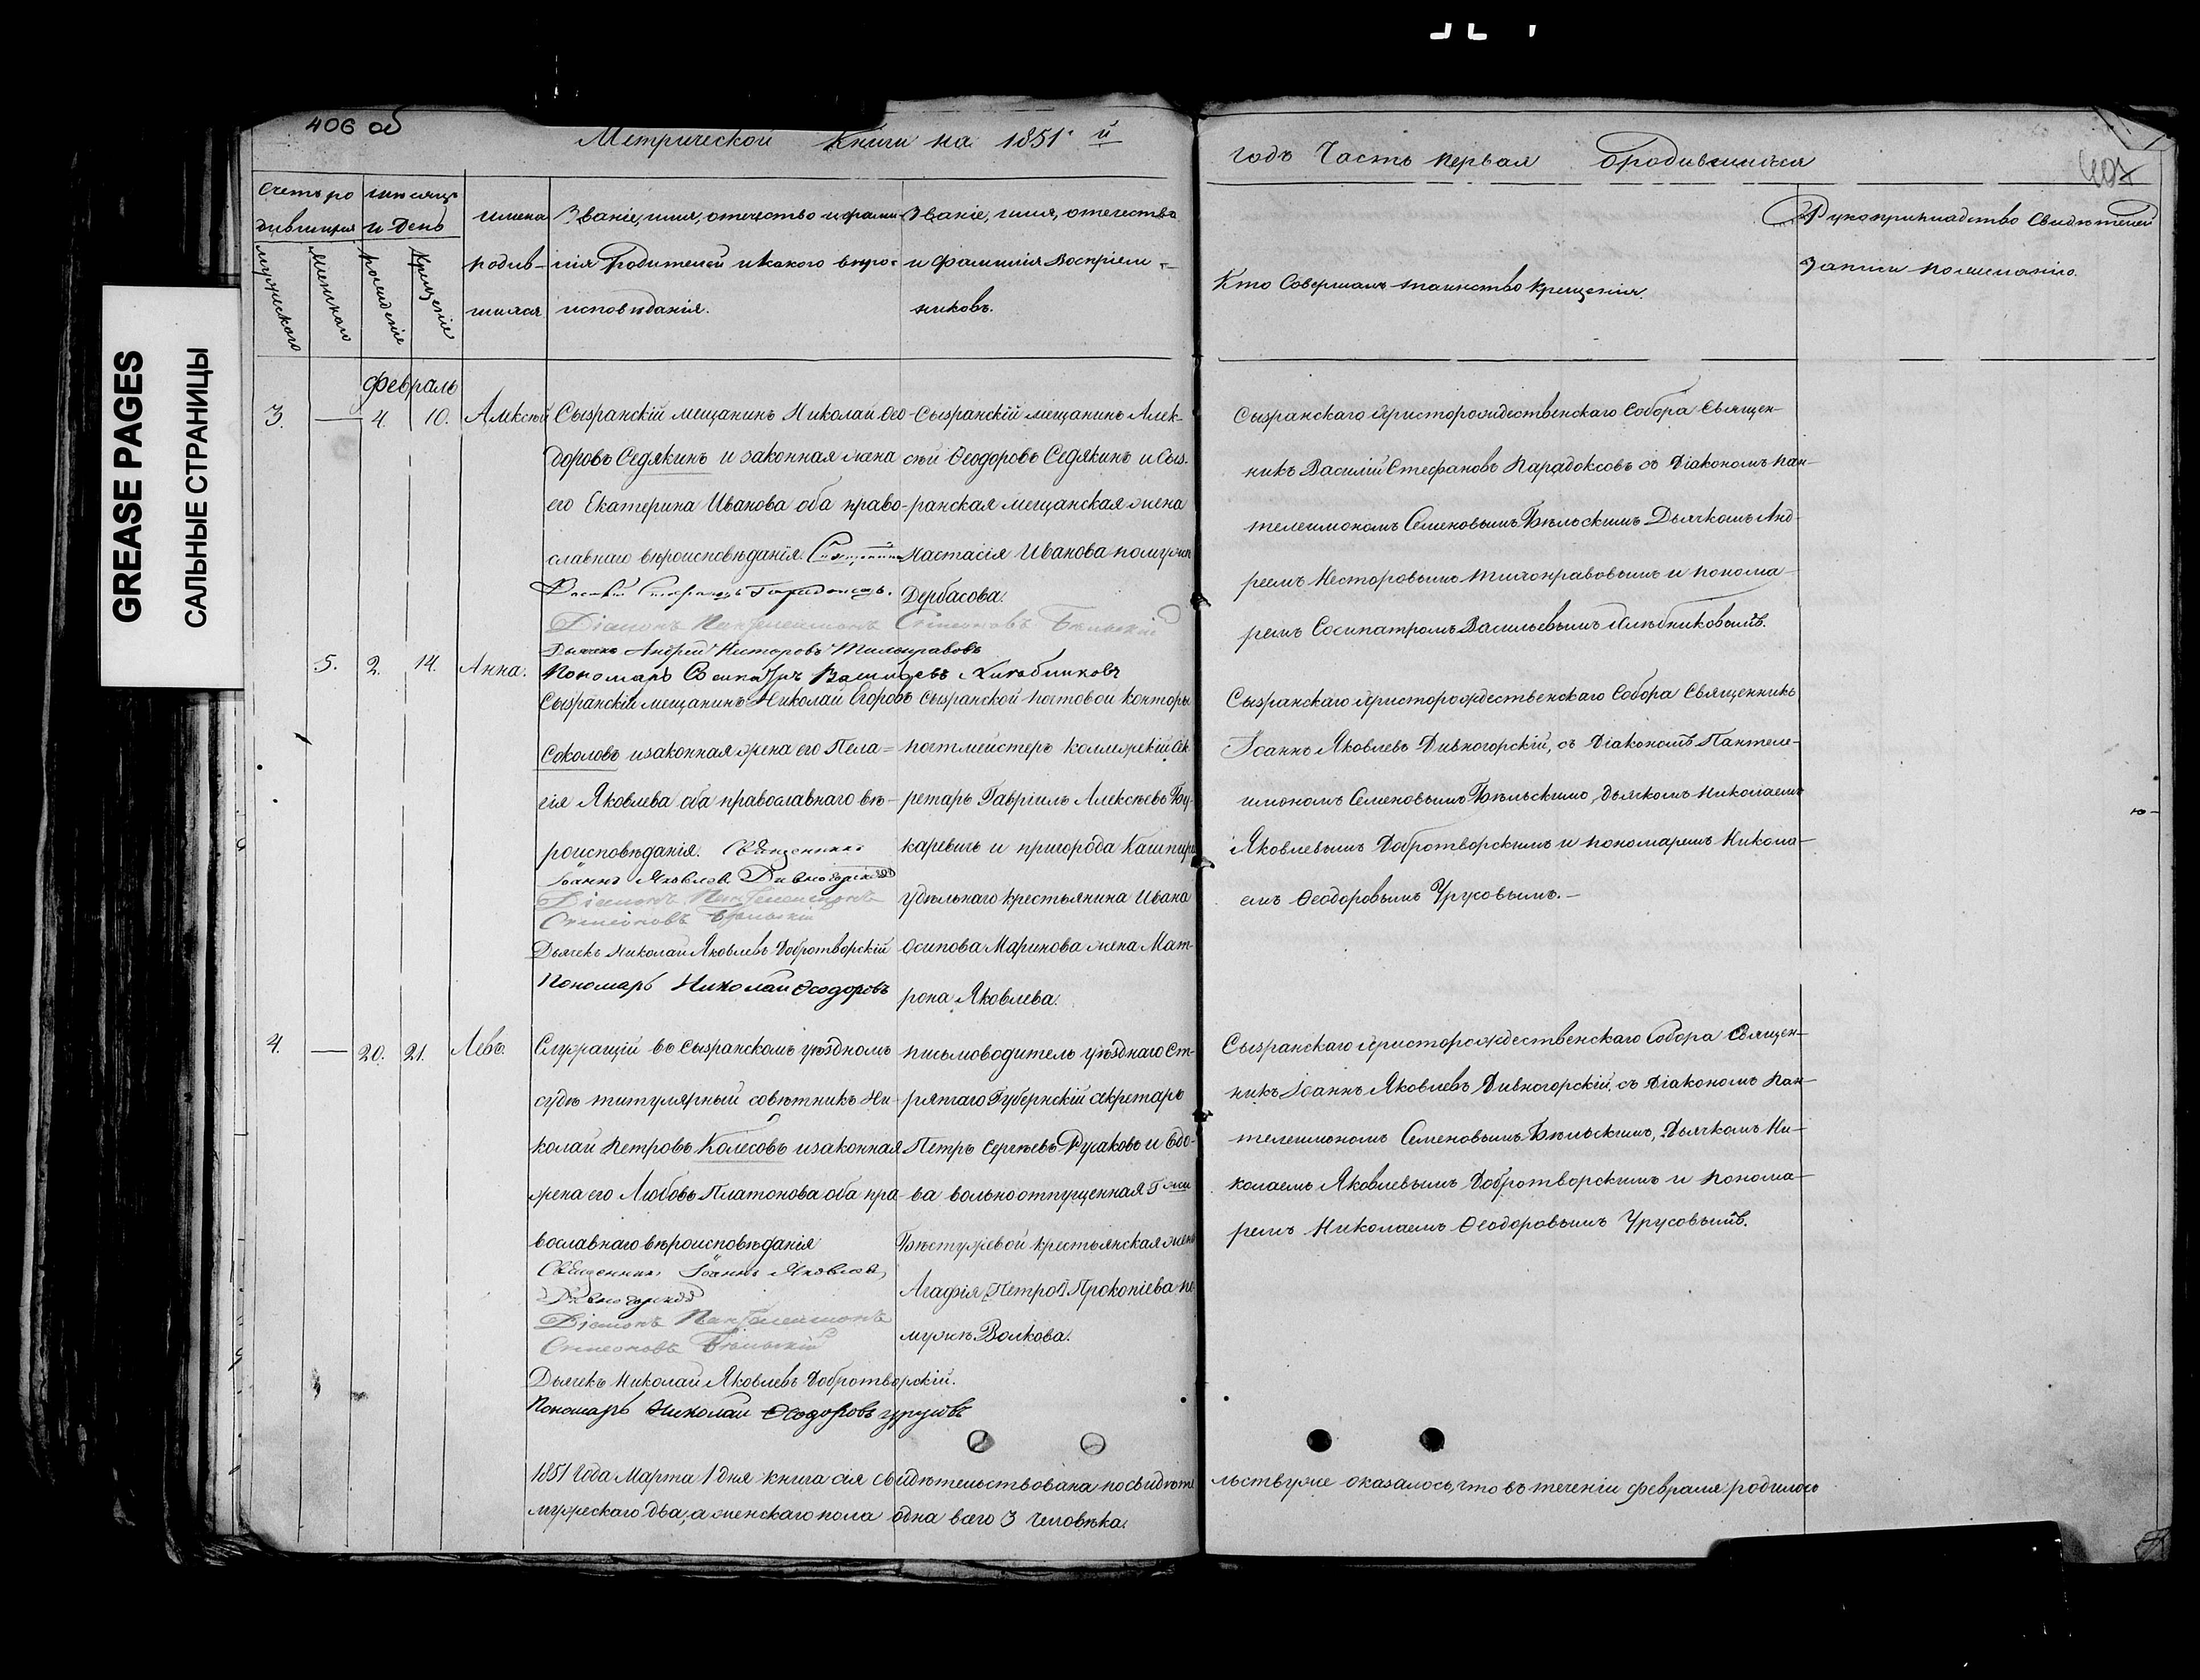 406 об
Метрической Книги на 1851й
годъ Часть первая о родившихся
407
GREASE PAGES
САЛЬНЫЕ СТРАНИЦЫ
Счетъ ро
дившихся
мужескаго
женскаго
мѣсяцъ
и день
рожденіе
Крещеніе
имена
родив-
шихся
Званіе, имя, отечество и фами-
лія Родителей и какого вѣро-
исповѣданія.
Званіе, имя, отечество
и фамилія Воспріем-
никовъ.
Кто Совершалъ таинство крещенія.
Рукоприкладство Свидѣтелей
записи по желанію.
Февраль
3. — 4. 10. Алексѣй
Сызранскій мещанинъ Николай Ѳео-
доровъ Седякинъ и законная жена
его Екатерина Иванова оба право-
славнаго вѣроисповѣданія. Священникъ
Василій Стефановъ Парадоксовъ.
Діаконъ Пантелеимонъ Симеоновъ Бѣльскій
Дьячекъ Андрей Нисторовъ Тихонравовъ
Пономарь Сосипатръ Васильевъ Хлѣбниковъ
Сызранскій мещанинъ Алек-
сѣй Ѳеодоровъ Седякинъ и Сыз-
ранская мещанская жена
Настасія Иванова по мужѣ
Дербасова.
Сызранскаго Христорождественскаго Собора Священ-
никъ Василій Стефановъ Парадоксовъ съ Діакономъ Пан-
телеимономъ Семеновымъ Бѣльскимъ Дьячкомъ Анд-
реемъ Несторовымъ Тихонравовымъ и понома-
ремъ Сосипатромъ Васильевымъ Хлѣбниковымъ.
5. 2. 14. Анна.
Сызранскій мещанинъ Николай Егоровъ
Соколовъ и законная жена его Пела=
гія Яковлева оба православнаго вѣ-
роисповѣданія. Священникъ
Іоаннъ Яковлевъ Дивногорскій
Діаконъ Пантелеимонъ
Симеоновъ Бѣльскій
Дьячекъ Николай Яковлевъ Добротворскій
Пономарь Николай Ѳеодоровъ
Сызранской почтовой конторы
почтмейстеръ коллежскій сек
ретарь Гавріилъ Алексѣевъ Бу-
каревичь и пригорода Кашпира
удѣльнаго крестьянина Ивана
Осипова Маринова жена Мат-
рона Яковлева.
Сызранскаго Христорождественскаго Собора Священникъ
Іоаннъ Яковлевъ Дивногорскій, съ Діакономъ Пантеле-
имономъ Семеновымъ Бѣльскимъ, дьячкомъ Николаемъ
Яковлевымъ Добротворскимъ и пономаремъ Никола-
емъ Ѳеодоровымъ Урусовымъ.—
4. — 20. 21. Левъ.
Служащій въ Сызранскомъ уѣздномъ
судѣ титулярный совѣтникъ Ни-
колай Петровъ Колесовъ и законная
жена его Любовь Платонова оба пра-
вославнаго вѣроисповѣданія
Священникъ Іоаннъ Яковлевъ
Дивногорскій
Діаконъ Пантелеимонъ
Симеоновъ Бѣльскій
Дьячекъ Николай Яковлевъ Добротворскій.
Пономарь Николай Ѳеодоровъ Урусовъ
письмоводитель уѣзднаго Ст-
ряпчаго Губернскій секретарь
Петръ Сергѣевъ Русаковъ и вдо-
ва вольноотпущенная Гжи
Бѣстужевой крестьянская жена
Агафія [Петров] Прокопіева по
мужѣ Волкова.
Сызранскаго Христорождественскаго Собора Священ-
никъ Іоаннъ Яковлевъ Дивногорскій, съ Діакономъ Пан-
телеимономъ Семеновымъ Бѣльскимъ, Дьячкомъ Ни-
колаемъ Яковлевымъ Добротворскимъ и понома-
ремъ Николаемъ Ѳеодоровымъ Урусовымъ.
1851 Года Марта 1 дня книга сія свидѣтельствована по свидѣте льству же оказалось, что въ теченіи февраля родилось
мужескаго два, а женскаго пола одна всего 3 человѣка.